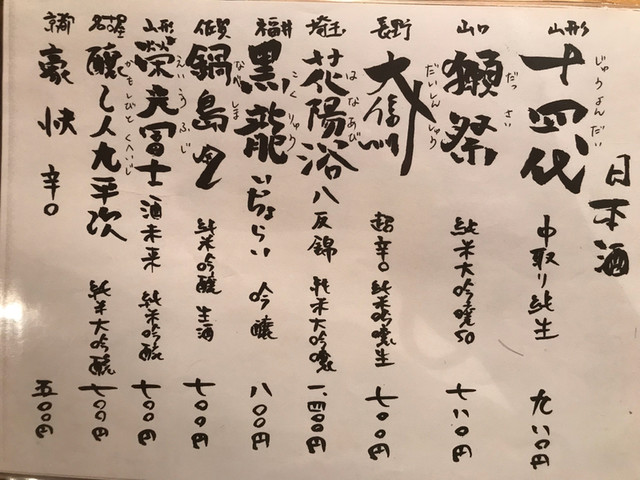 日本酒
山形 十四代 じゅうよんだい 中取り純生 九一〇円
山口 獺祭 だっさい 純米大吟醸50 七一〇円
長野 大信州 だいしんしゅう 超辛口 純米吟醸生 七〇〇円
埼玉 花陽浴 はなあび 八反錦 純米大吟醸 一、四〇〇円
福井 黒龍 こくりゅう いっちょらい 吟醸 八〇〇円
佐賀 鍋島 なべしま 純米吟醸 生酒 七〇〇円
山形 栄光冨士 えいこうふじ 酒未来 純米吟醸 七〇〇円
名古屋 醸し人九平次 かもしびとくへいじ 純米大吟醸 七〇〇円
京都 豪快 辛口 五〇〇円